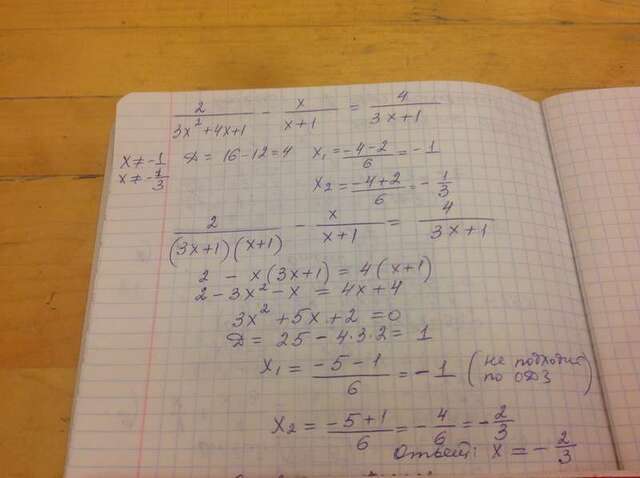 2/(3x²+4x+1) - x/(x+1) = 4/(3x+1)
x≠-1 D = 16-12=4 x₁=(-4-2)/6=-1
x≠-1/3 x₂=(-4+2)/6=-1/3
2/((3x+1)(x+1)) - x/(x+1) = 4/(3x+1)
2 - x(3x+1) = 4(x+1)
2-3x²-x = 4x+4
3x²+5x+2=0
D= 25-4·3·2= 1
x₁ = (-5-1)/6 = -1 (не подходит по ОДЗ)
x₂ = (-5+1)/6 = -4/6 = -2/3
Ответ: x = -2/3